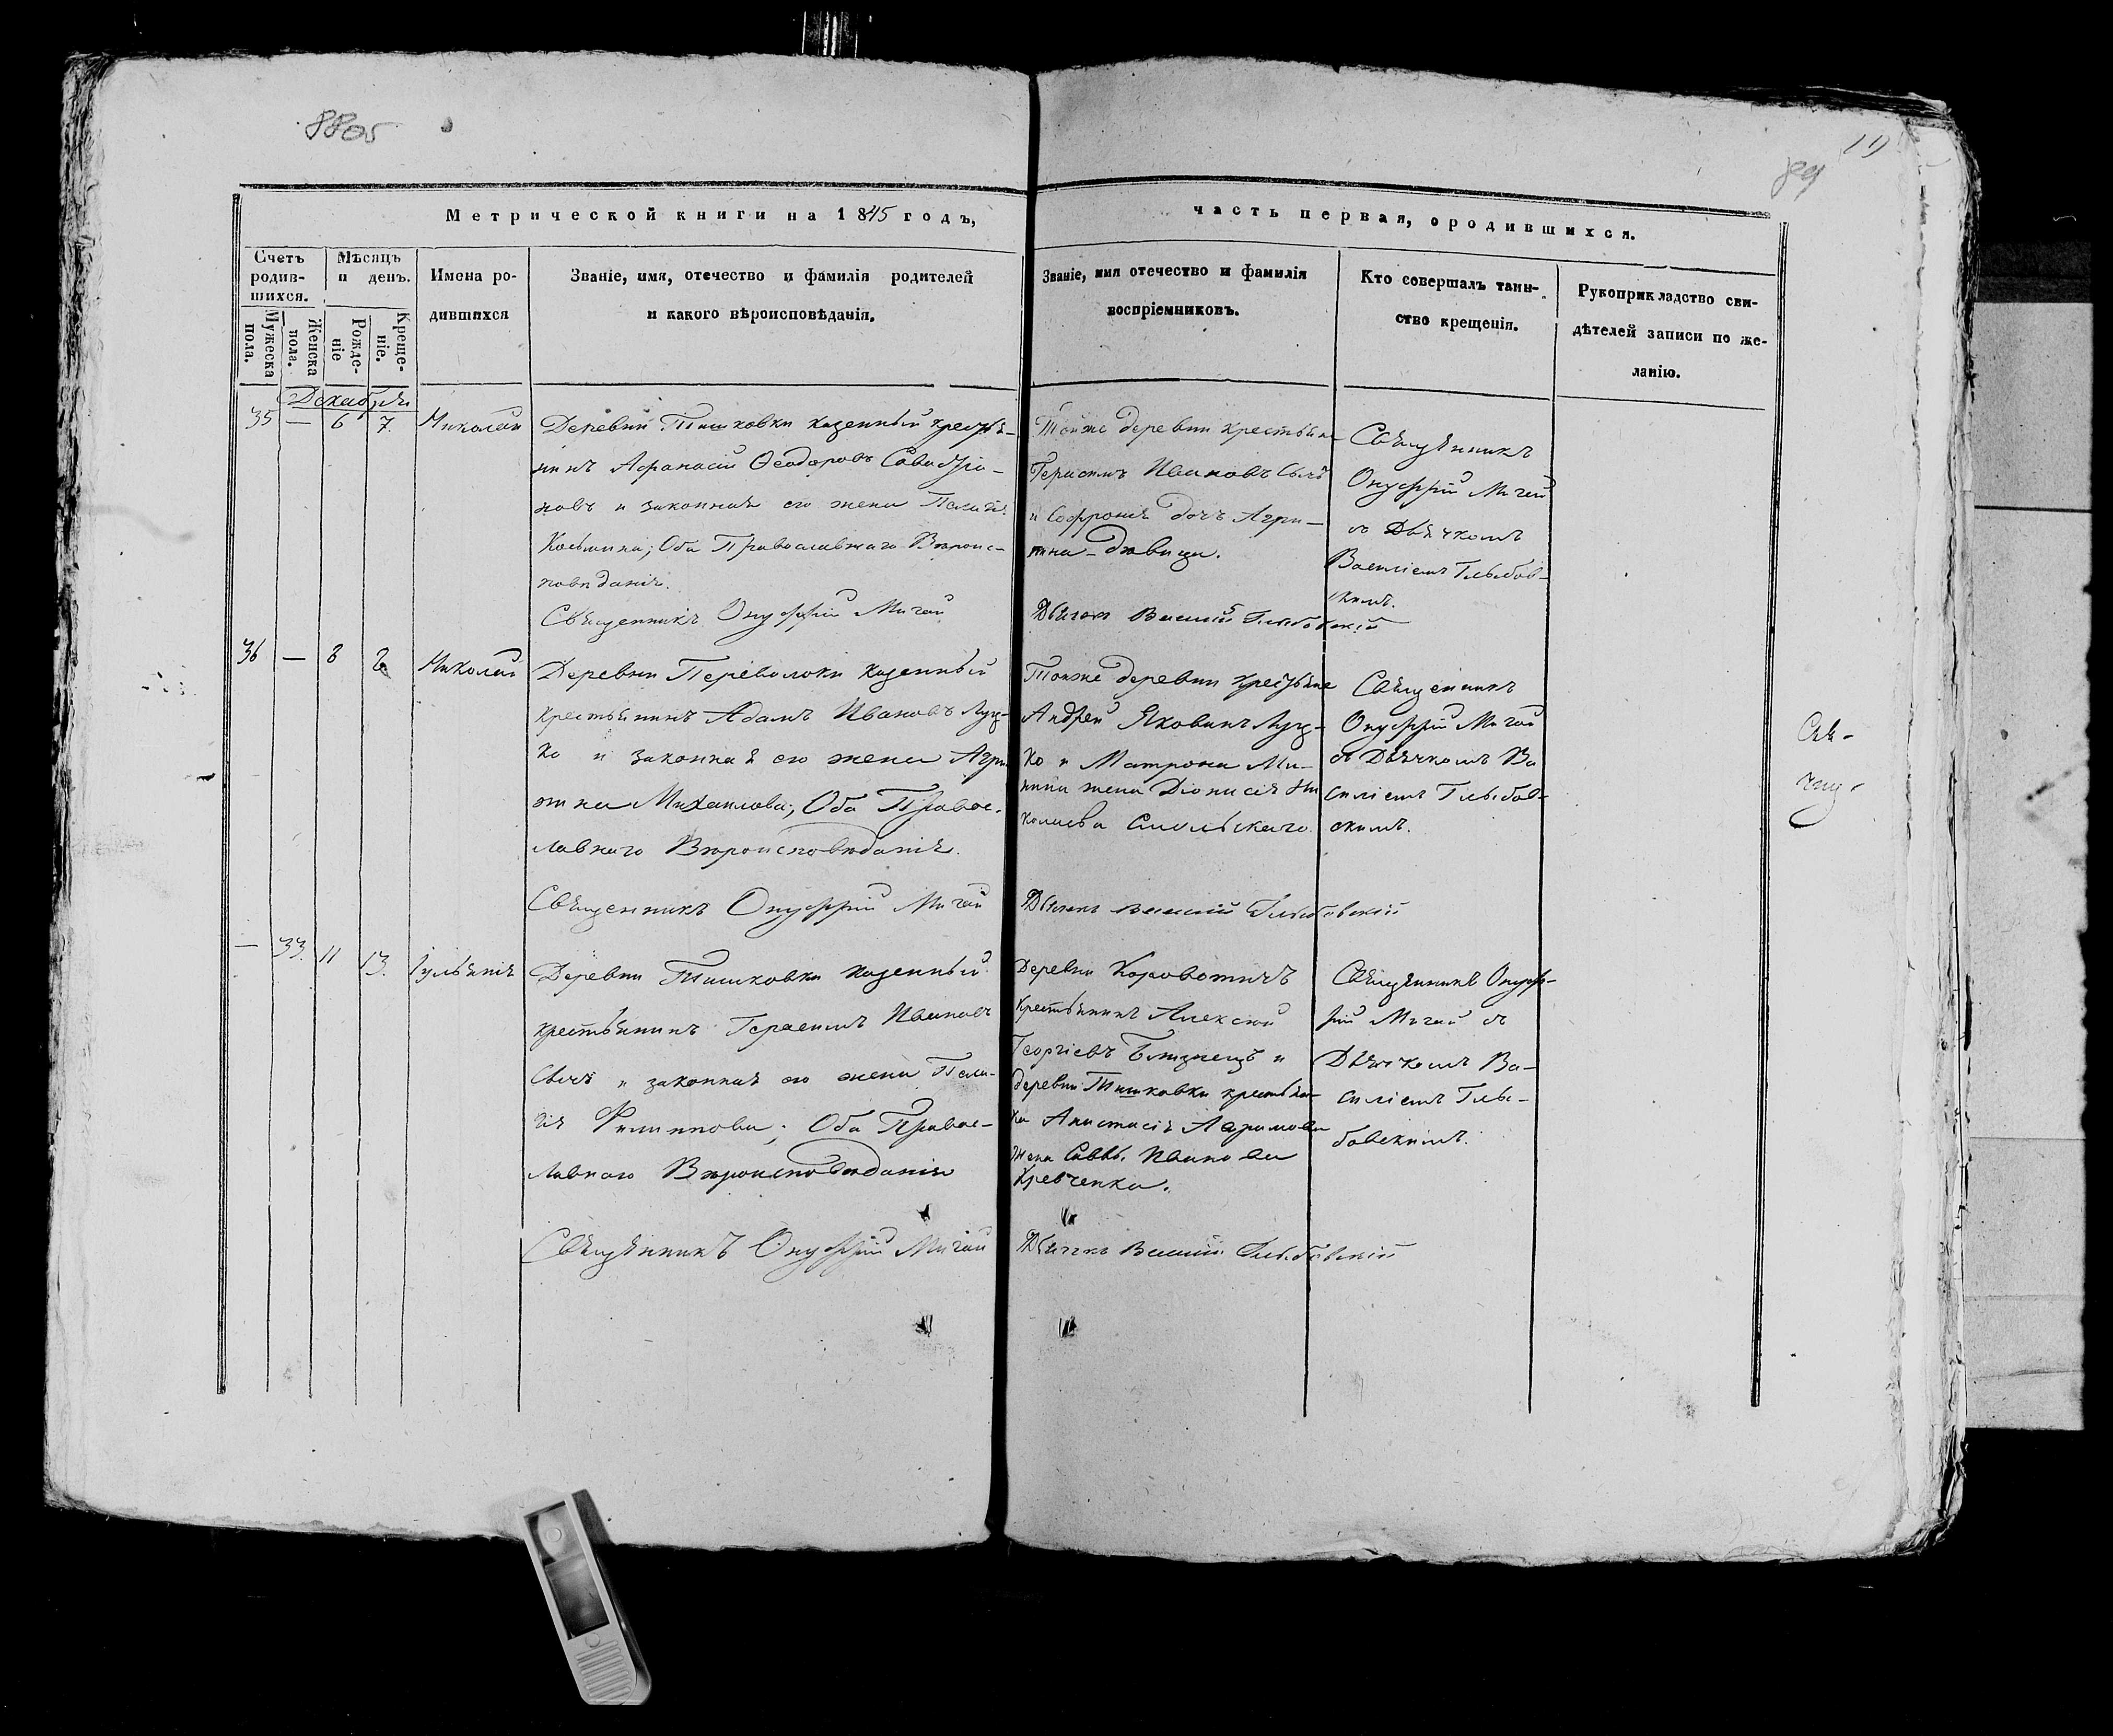 8805
19
89
Метрической книги на 1845 годъ,
часть первая, ородившихся.
Счетъ родив-
шихся.
Мужеска пола.
Женска пола.
Мѣсяцъ и день.
Рожде-
ніе
Креще-
ніе.
Имена ро-
дившихся
Званіе, имя, отечество и фамилія родителей
и какого вѣроисповѣданія.
Званіе, имя отечество и фамилія
воспріемниковъ.
Кто совершалъ таин-
ство крещенія.
Рукоприкладство сви-
дѣтелей записи по же-
ланію.
Декабрь
35 — 6 7. Николай
Деревни Тишковки казенный крестья-
нинъ Афанасій Ѳеодоровъ
и законная его жена
Козьмина; Оба Православнаго Вѣроис-
повѣданія.
Священникъ Онуфрій Мигай
Тойже деревни крестьян
Герасимъ Ивановъ Сычъ
и Софронія дочь Агри-
пина девица.
Дьячокъ Василій Глыбовскій
Священникъ
Онуфрій Мигай
съ Дьячкомъ
Василіемъ Глыбов-
скимъ.
36 — 8 Николай
Деревни Переволоки казенный
крестьянинъ Адамъ Ивановъ Луц-
ко и законная его жена Агри
пина Михаилова; Оба Правос-
лавнаго Вѣроисповѣданія.
Священникъ Онуфрій Мигай
Тойже деревни крестьяне
Андрей Яковинъ Луц-
ко и Матрона
жена Діонисія Ни
колаева
Дьячокъ Василій Глыбовскій
Священникъ
Онуфрій Мигай
съ Дьячкомъ Ва
силіемъ Глыбов-
скимъ.
— 33. 11 13. Іуліянія
Деревни Тишковки казенный
крестьянинъ Герасимъ Ивановъ
Сычъ и законная его жена Пела-
гія Филиппова; Оба Правос-
лавнаго Вѣроисповѣданія
Священникъ Онуфрій Мигай
Деревни Короватичъ
крестьянинъ Алексей
Георгіевъ и
деревни Тишковки крестьян-
ка Анастасія
жена Саввы Иванова
Кревченка.
Дьячокъ Василій Глыбовскій
Священникъ Онуф-
рій Мигай съ
Дьячкомъ Ва-
силіемъ Глы-
бовскимъ.